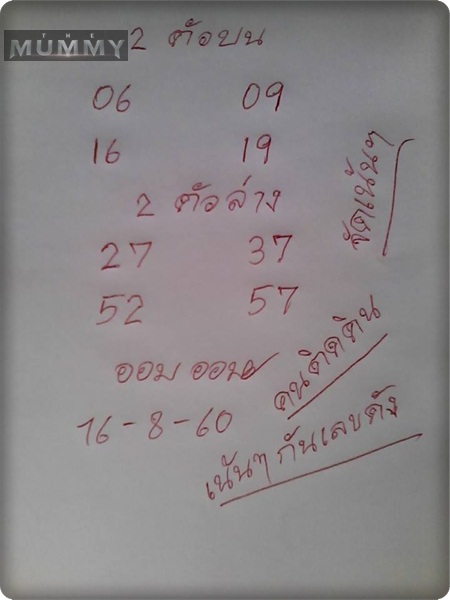 THE
MUMMY
2 ตัวบน
06 09
16 19
จัดเน้นๆ
2 ตัวล่าง
27 37
52 57
ออม ออม
16-8-60
คนติดดิน
เน้นๆ กันเลขดัง